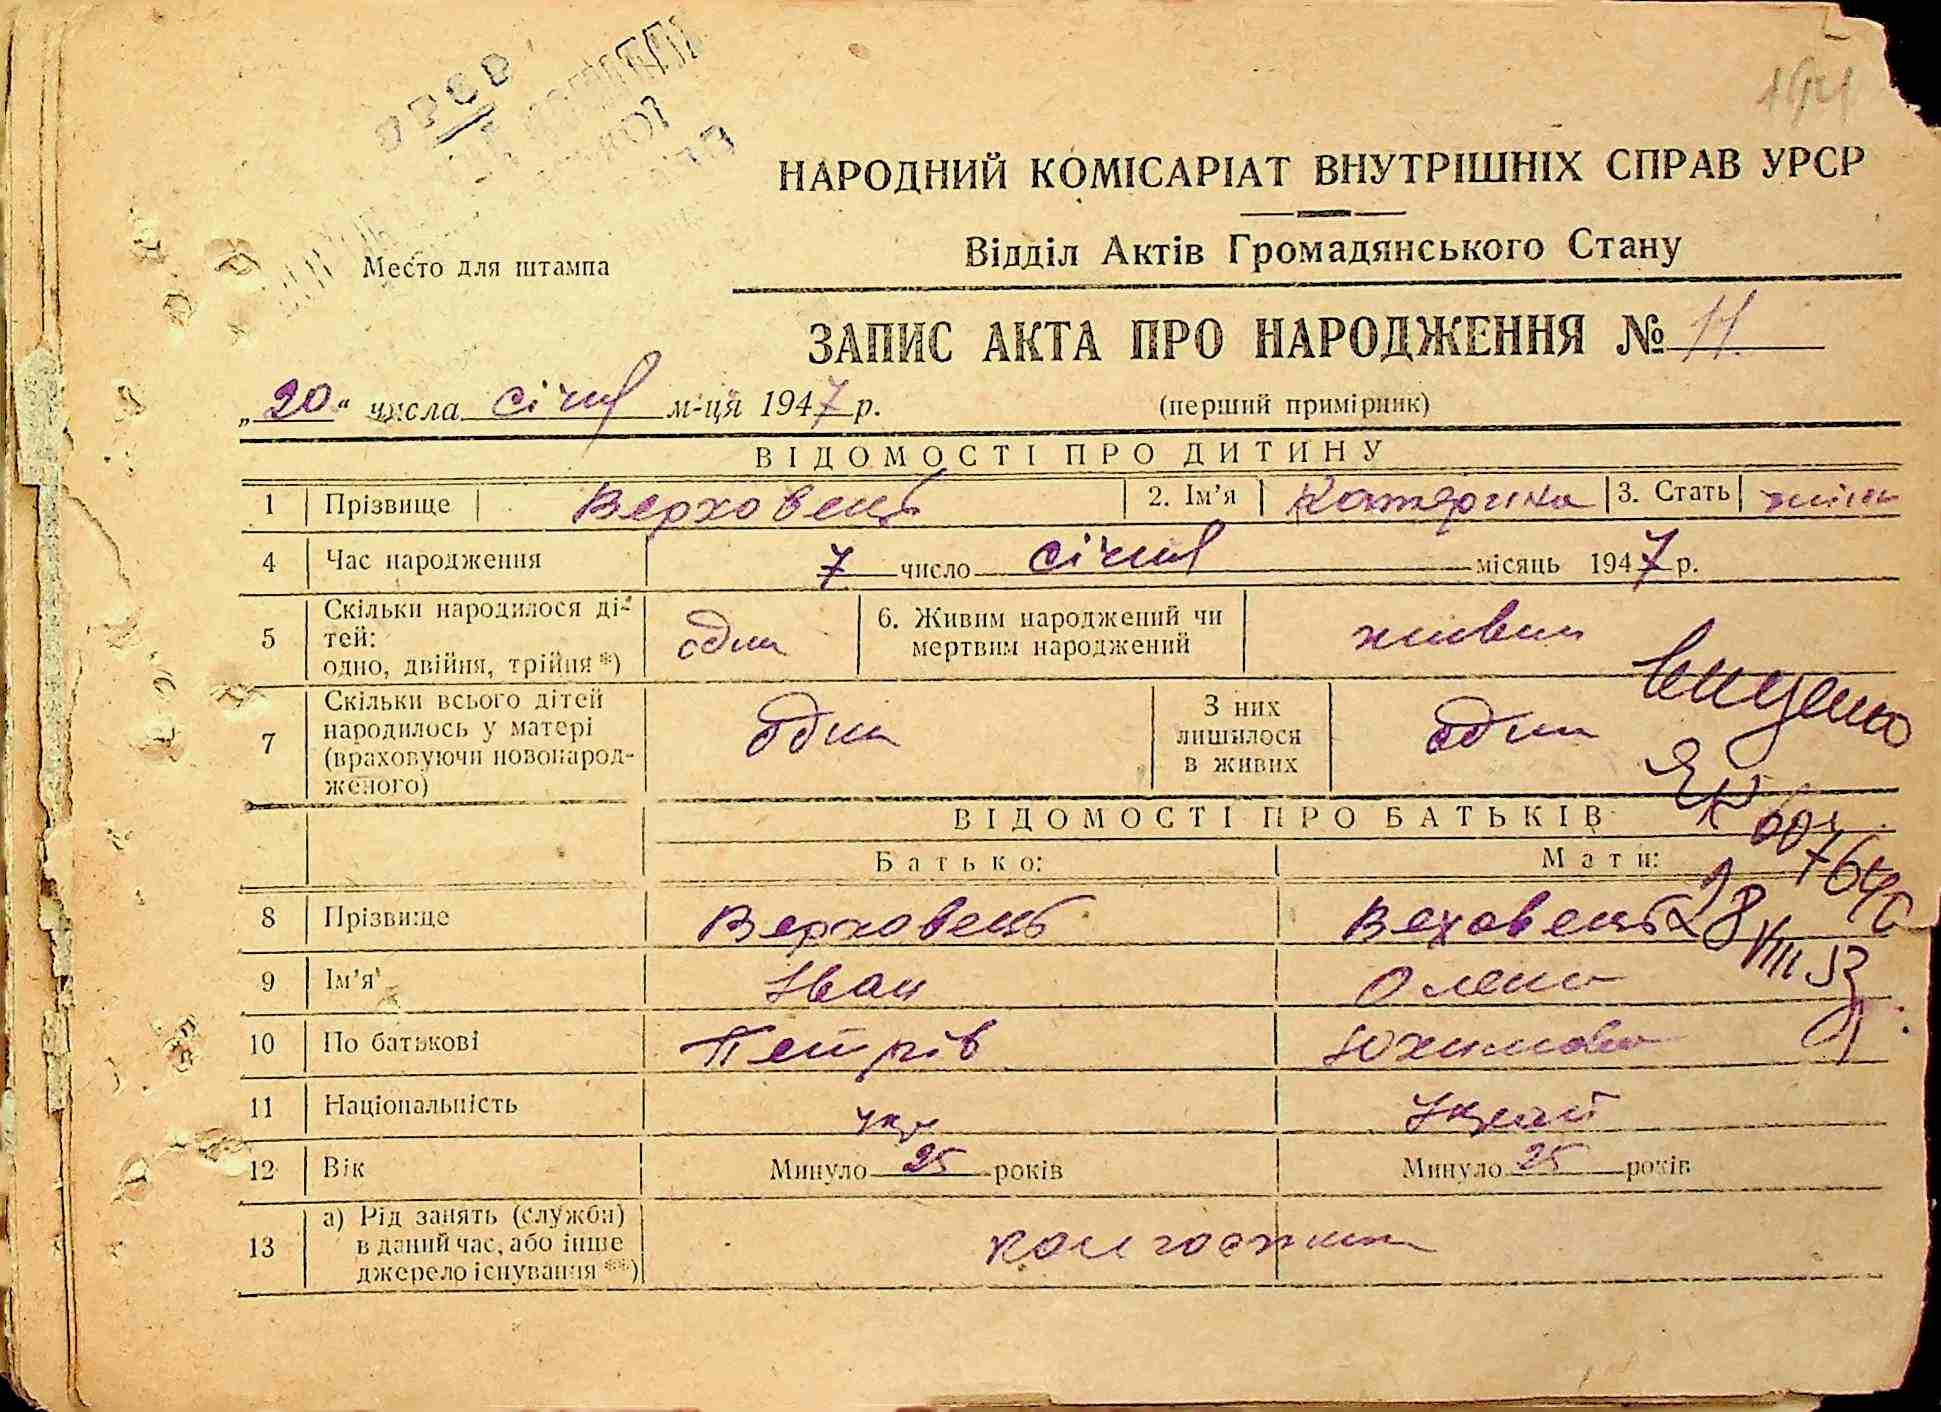 УРСР
194
НАРОДНИЙ КОМІСАРІАТ ВНУТРІШНІХ СПРАВ УРСР
Відділ Актів Громадянського Стану
Место для штампа
ЗАПИС АКТА ПРО НАРОДЖЕННЯ № 11.
„20“ числа січня м-ця 1947 р. (перший примірник)
ВІДОМОСТІ ПРО ДИТИНУ
1 Прізвище Верховець 2. Ім’я Катерина 3. Стать жіноч
4 Час народження 7 число січня місяць 1947 р.
5 Скільки народилося ді-
тей:
одно, двійня, трійня *) одна 6. Живим народжений чи
мертвим народжений живим
7 Скільки всього дітей
народилось у матері
(враховуючи новонарод-
женого) одна З них
лишилося
в живих одна
ВІДОМОСТІ ПРО БАТЬКІВ
Батько: Мати:
8 Прізвище Верховець Веховець
28 VIII 53
9 Ім’я Іван Олена
10 По батькові Петрів Юхимовна
11 Національність укр Украї
12 Вік Минуло 25 років Минуло 25 років
13 а) Рід занять (служби)
в даний час, або інше
джерело існування **) колгоспники